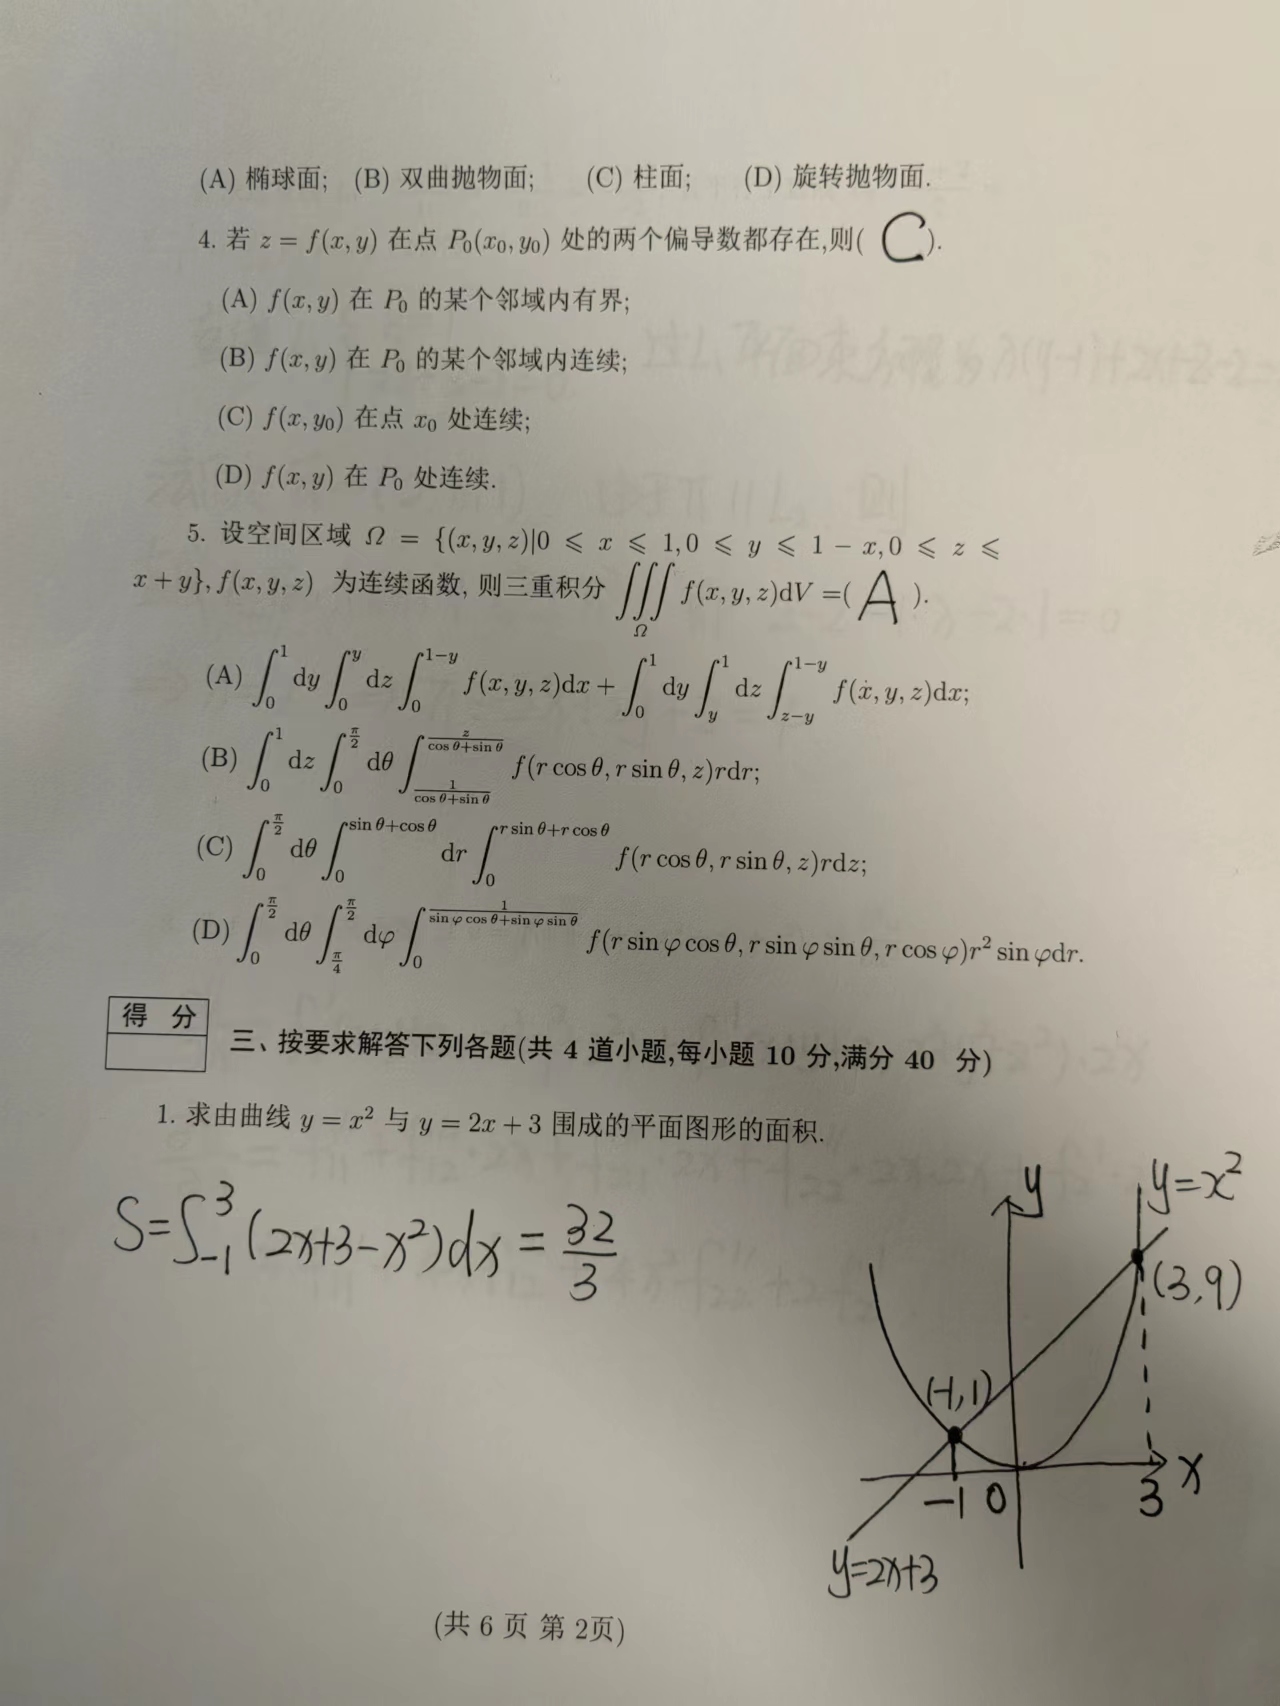 (A) 椭球面; (B) 双曲抛物面; (C) 柱面; (D) 旋转抛物面.
4. 若 z = f(x, y) 在点 P₀(x₀, y₀) 处的两个偏导数都存在,则( C ).
(A) f(x, y) 在 P₀ 的某个邻域内有界;
(B) f(x, y) 在 P₀ 的某个邻域内连续;
(C) f(x, y₀) 在点 x₀ 处连续;
(D) f(x, y) 在 P₀ 处连续.
5. 设空间区域 Ω = {(x, y, z)|0 ⩽ x ⩽ 1, 0 ⩽ y ⩽ 1 − x, 0 ⩽ z ⩽
x + y}, f(x, y, z) 为连续函数, 则三重积分 ∭_Ω f(x, y, z)dV =( A ).
(A) ∫_0^1 dy ∫_0^y dz ∫_0^{1−y} f(x, y, z)dx + ∫_0^1 dy ∫_y^1 dz ∫_{z−y}^{1−y} f(x, y, z)dx;
(B) ∫_0^1 dz ∫_0^{π/2} dθ ∫_{1/(cos θ+sin θ)}^{z/(cos θ+sin θ)} f(r cos θ, r sin θ, z)rdr;
(C) ∫_0^{π/2} dθ ∫_0^{sin θ+cos θ} dr ∫_0^{r sin θ+r cos θ} f(r cos θ, r sin θ, z)rdz;
(D) ∫_0^{π/2} dθ ∫_{π/4}^{π/2} dφ ∫_0^{1/(sin φ cos θ+sin φ sin θ)} f(r sin φ cos θ, r sin φ sin θ, r cos φ)r² sin φdr.
得 分
三、按要求解答下列各题(共 4 道小题,每小题 10 分,满分 40 分)
1. 求由曲线 y = x² 与 y = 2x + 3 围成的平面图形的面积.
S=∫_{-1}^3 (2x+3-x²)dx = 32/3
y
y=x²
(3,9)
(-1,1)
-1 0 3 x
y=2x+3
(共 6 页 第 2页)